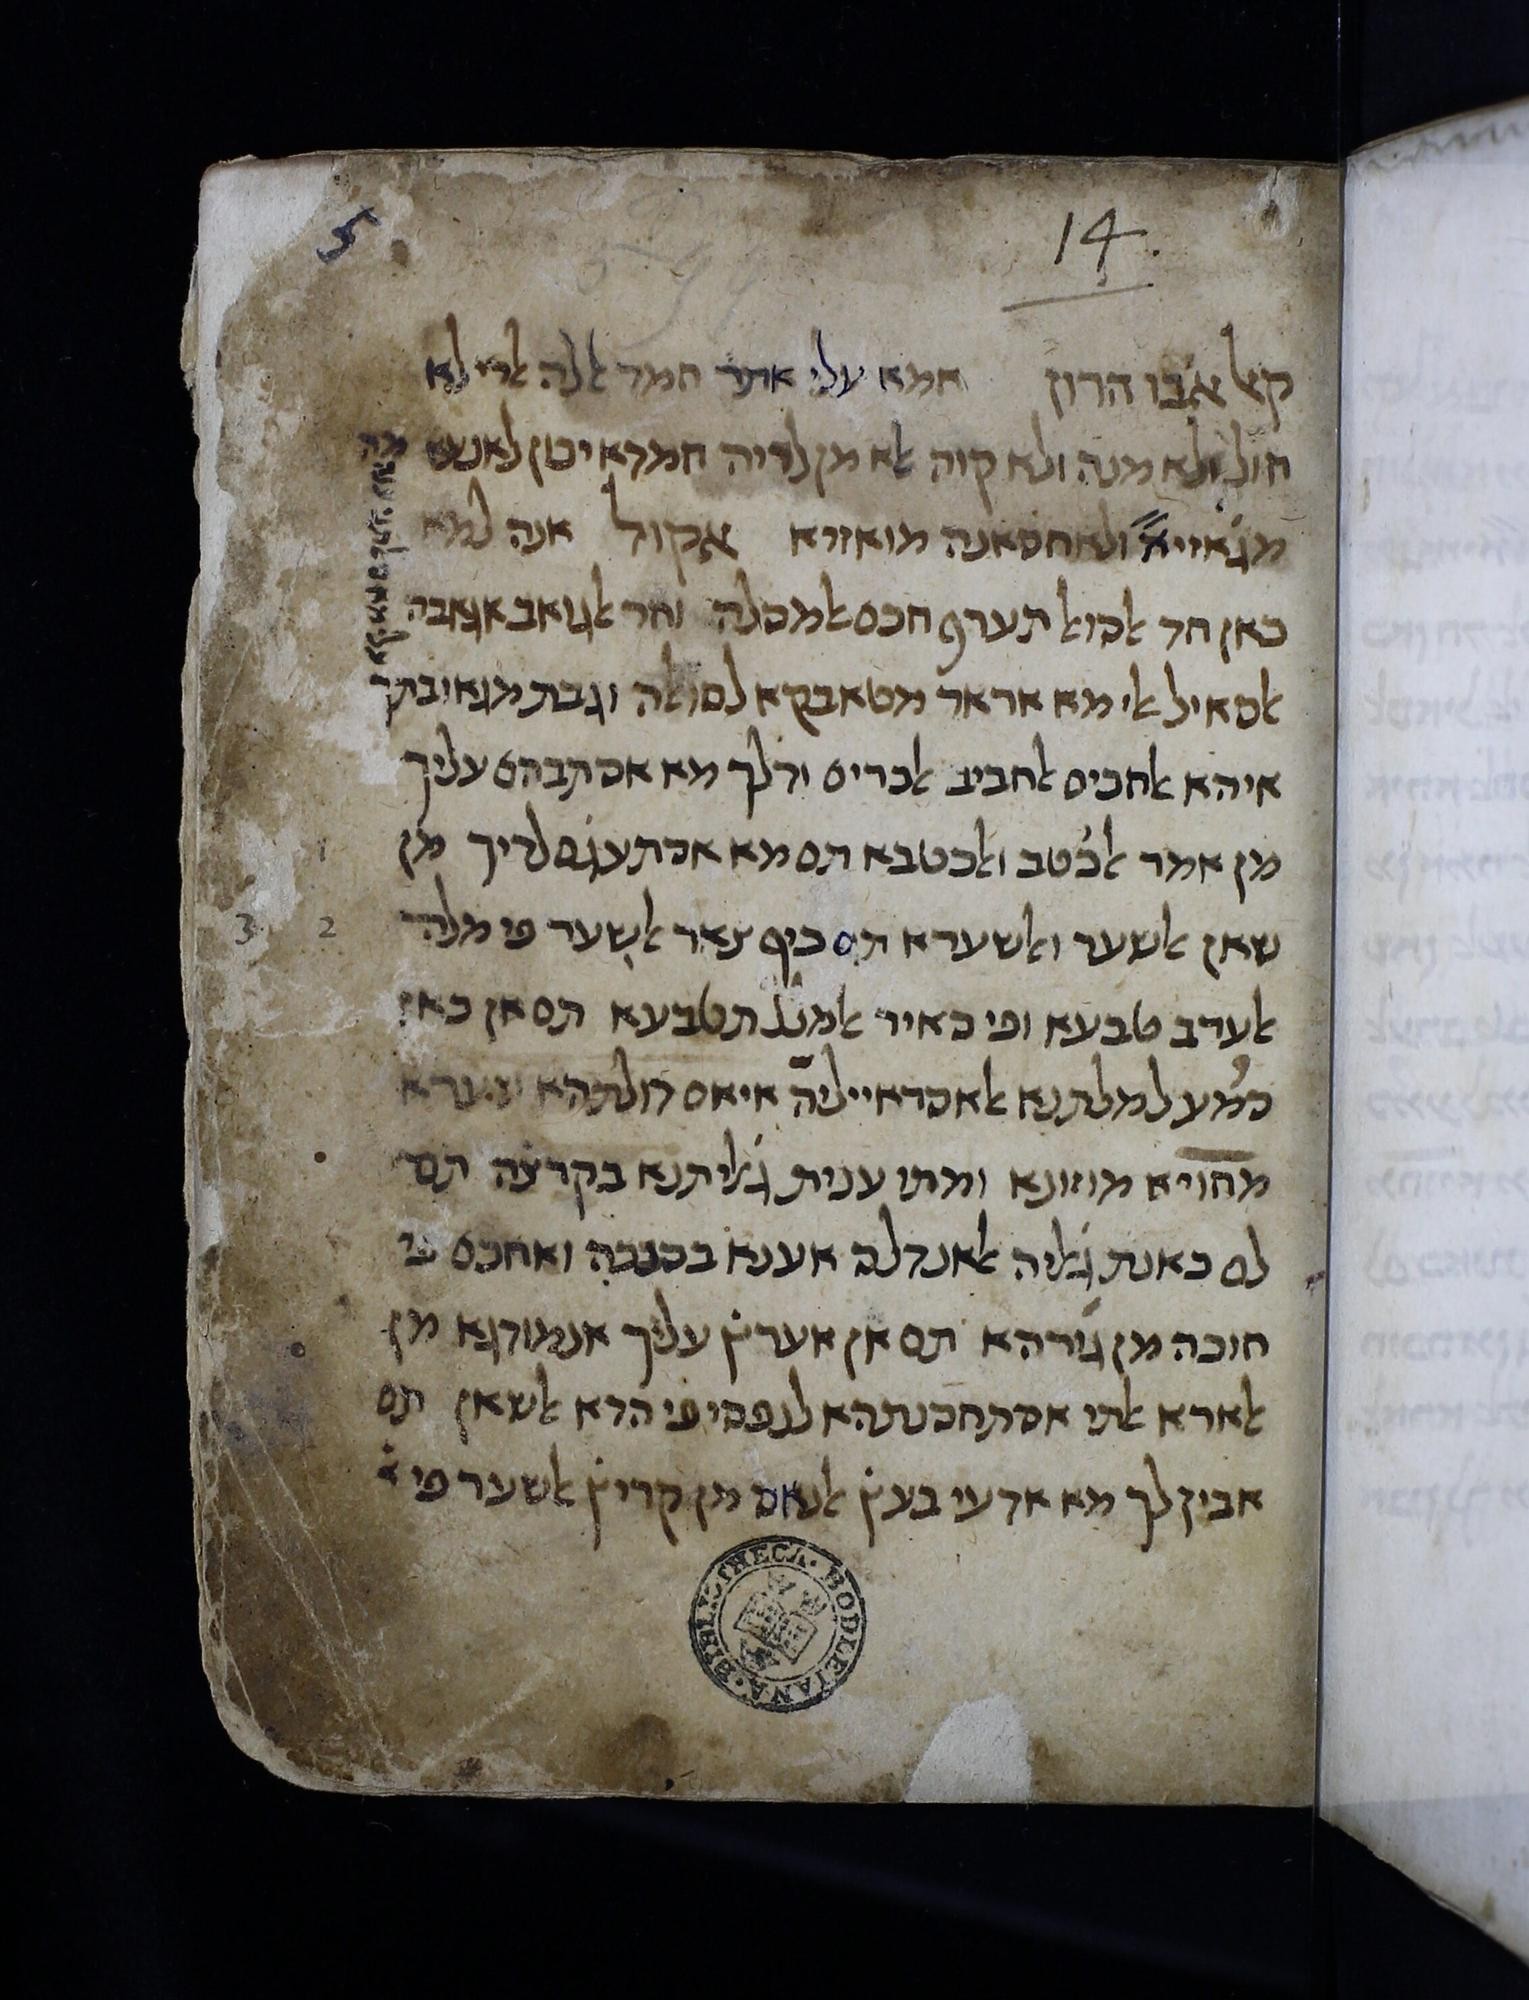 5
14.
קאל אבו הרון חמא עלי אתר חמד אללה אלדי לא
חול ולא מנה ולא קוה אלא מן לדיה חמדא יכון לאנעמה
מגאזיא ולאחסאנה מואזרא אקול אנה למא
כאן חד אלסואל תערף חכם אלמסלה וחד אלגואב אגאבה
אלסאיל אלי מא אראד מטאבקא לסואלה וגבת מגאובתך
איהא אלחכים אלחביב אלכרים ודלך מא אסתבהם עליך
מן אמר אלכטב ואלכטבא תם מא אסתעגם לדיך מן
3 2 שאן אלשער ואלשערא תם כיף צאר אלשער פי מלה
אלערב טבעא ופי סאיר אלמלל תטבעא תם אן כאן
סמע למלתנא אלאסראיליה איאם דולתהא שערא
מחויא מוזונא ומתי ענית גאליתנא בקרצה תם
לם כאנת גאליה אלאנדלס אענא בכתבה ואחכם פי
חוכה מן גירהא תם אן אערץ עליך אנמודגא מן
אלארא אלתי אסתחסנתהא לנפסי פי הדא אלשאן תם
אבין לך מא אדעי בעץ אלנאס מן קריץ אלשער פי
BIBLIOTHECA BODLEIANA